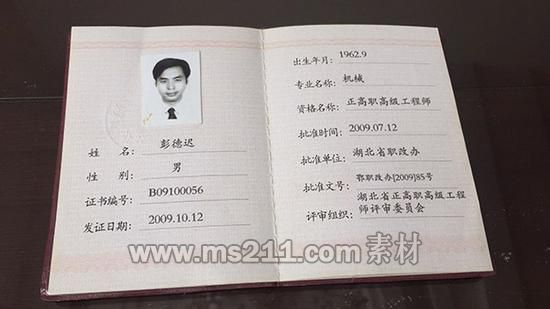 姓 名: 彭德迟
性 别: 男
证书编号: B09100056
发证日期: 2009.10.12
出生年月: 1962.9
专业名称: 机械
资格名称: 正高职高级工程师
批准时间: 2009.07.12
批准单位: 湖北省职改办
批准文号: 鄂职改办[2009]85号
评审组织: 湖北省正高职高级工程
师评审委员会
www.ms211.com 素材